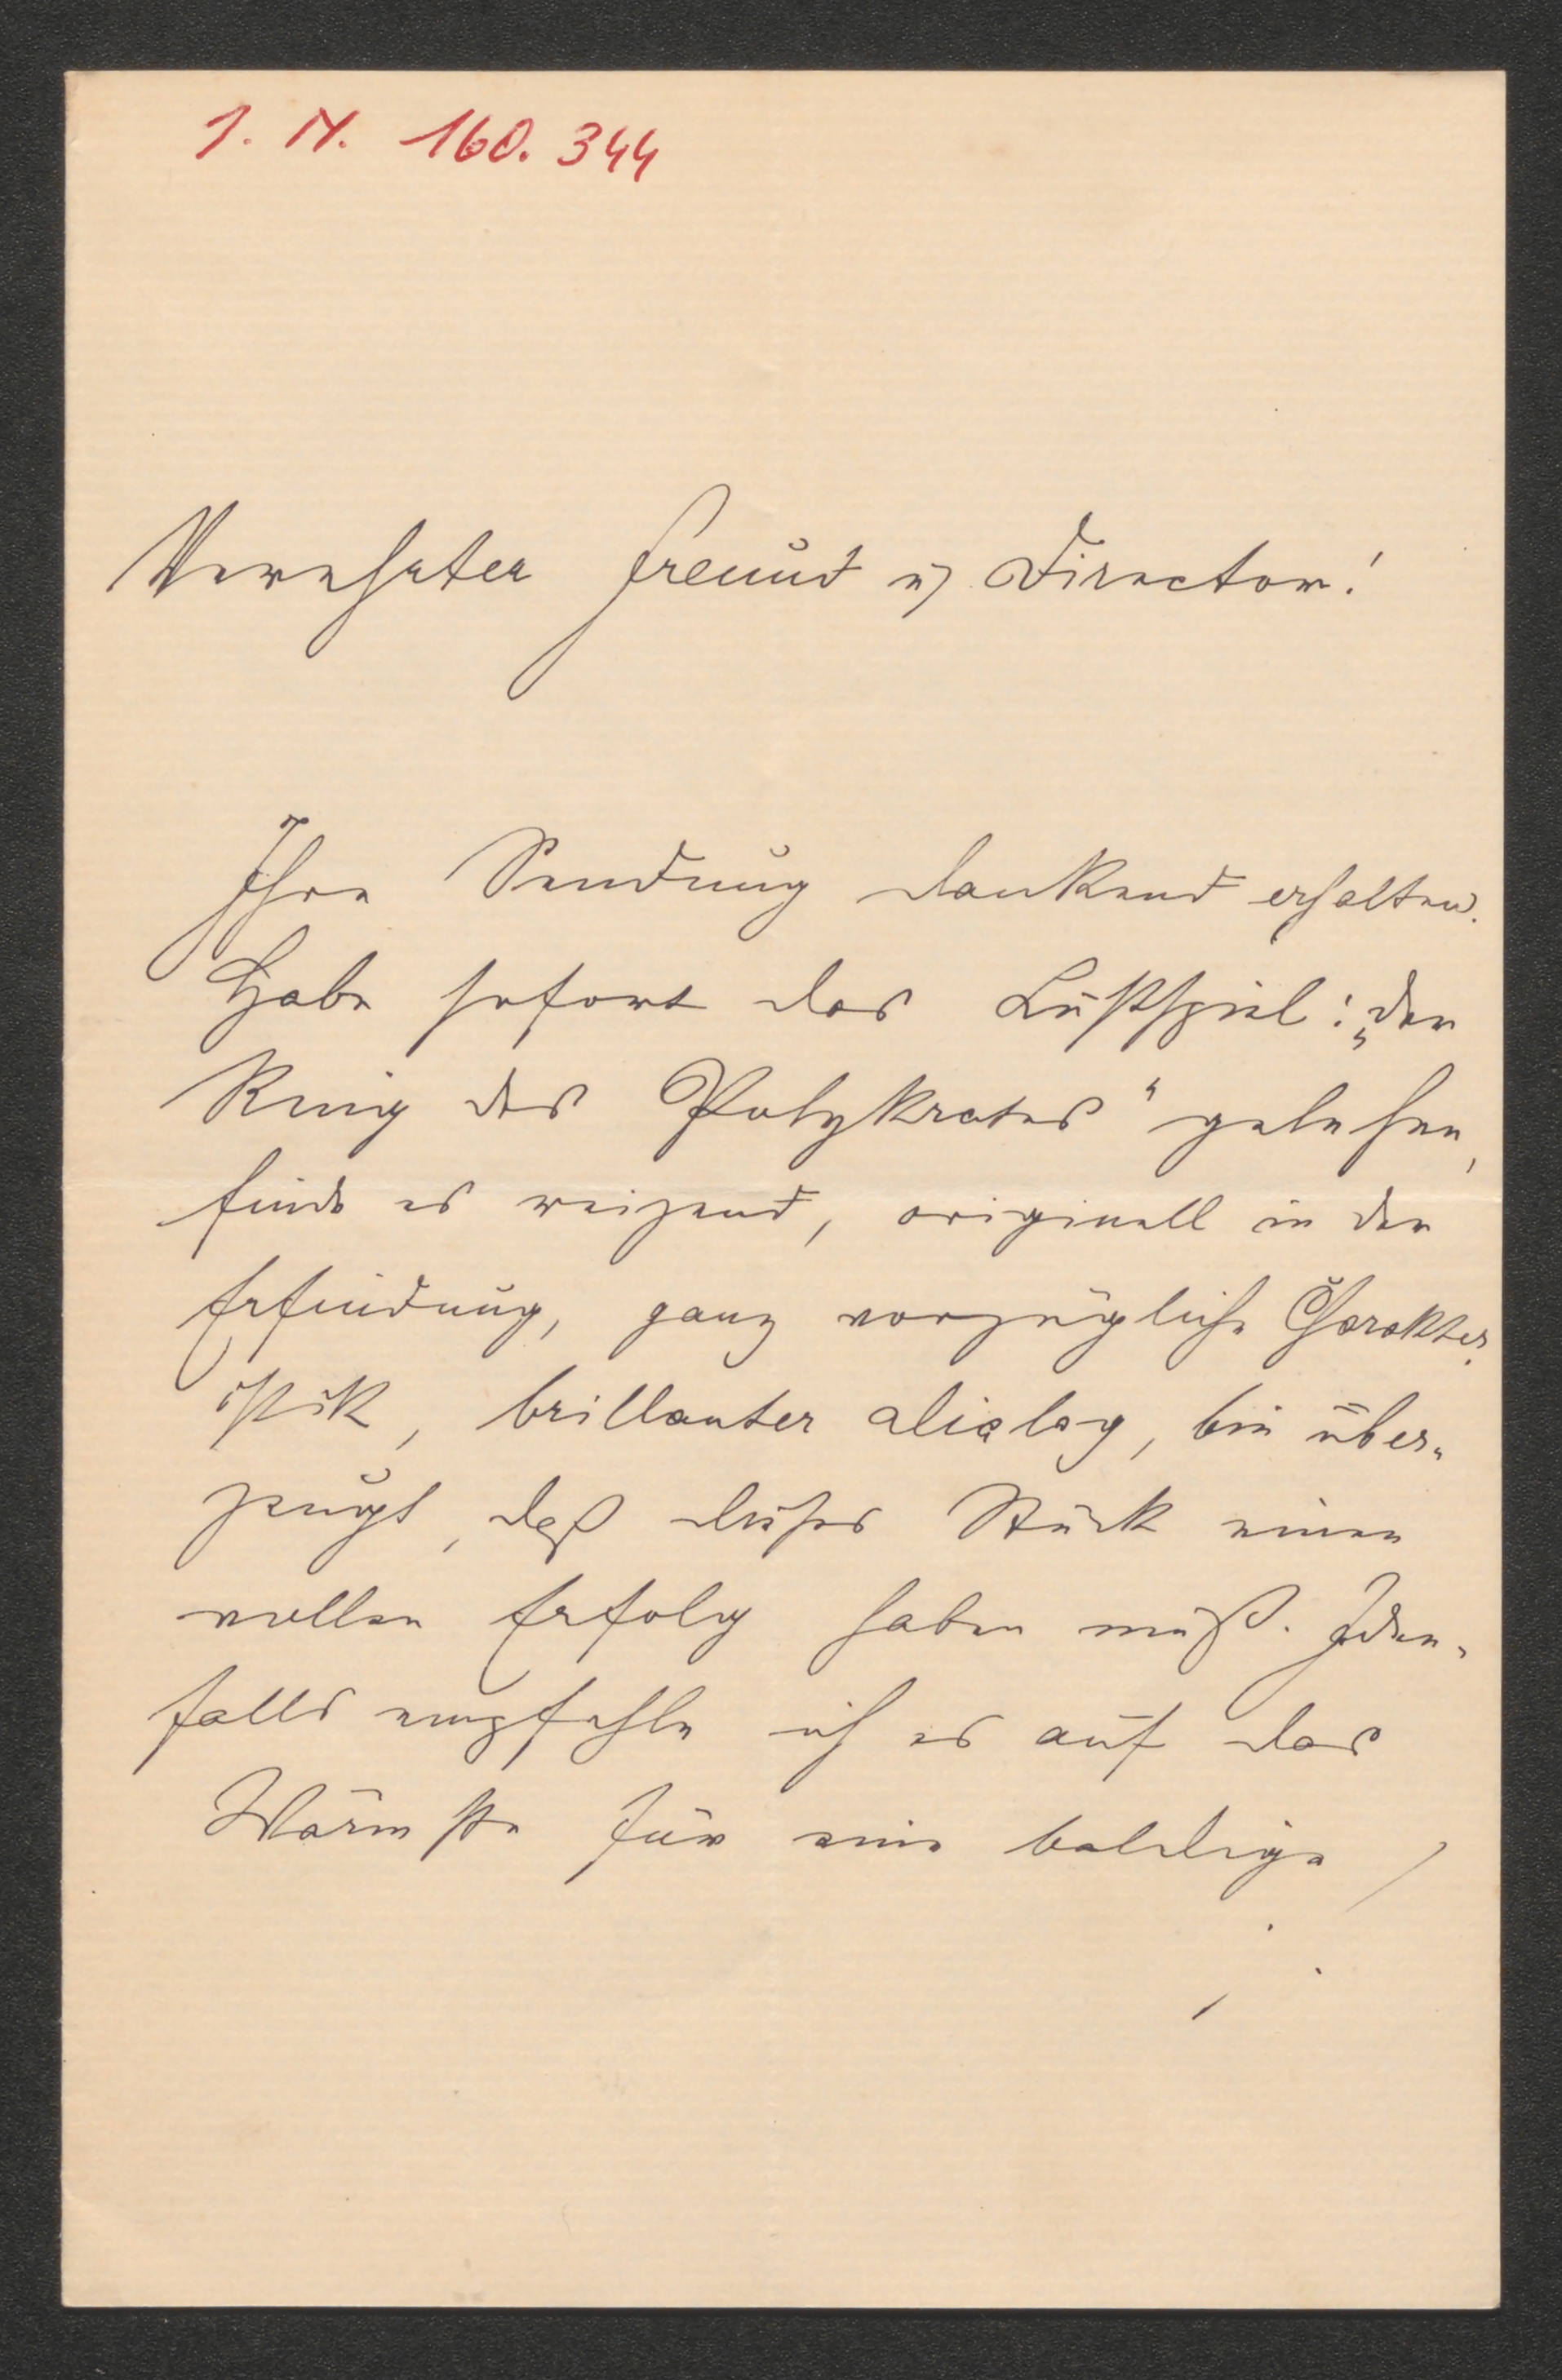 I. N. 160.344
Verehrter Freund u. Director!
Ihre Sendung dankend erhalten.
Habe sofort das Lustspiel: „Der
Ring des Polykrates" gelesen,
finde es reizend, originell in der
Erfindung, ganz vorzügliche Charakter-
istik, brillanter Dialog, bin über-
zeugt, daß dieses Stück einen
vollen Erfolg haben muß. Jeden-
falls empfehle ich es auf das
Wärmste für eine baldige